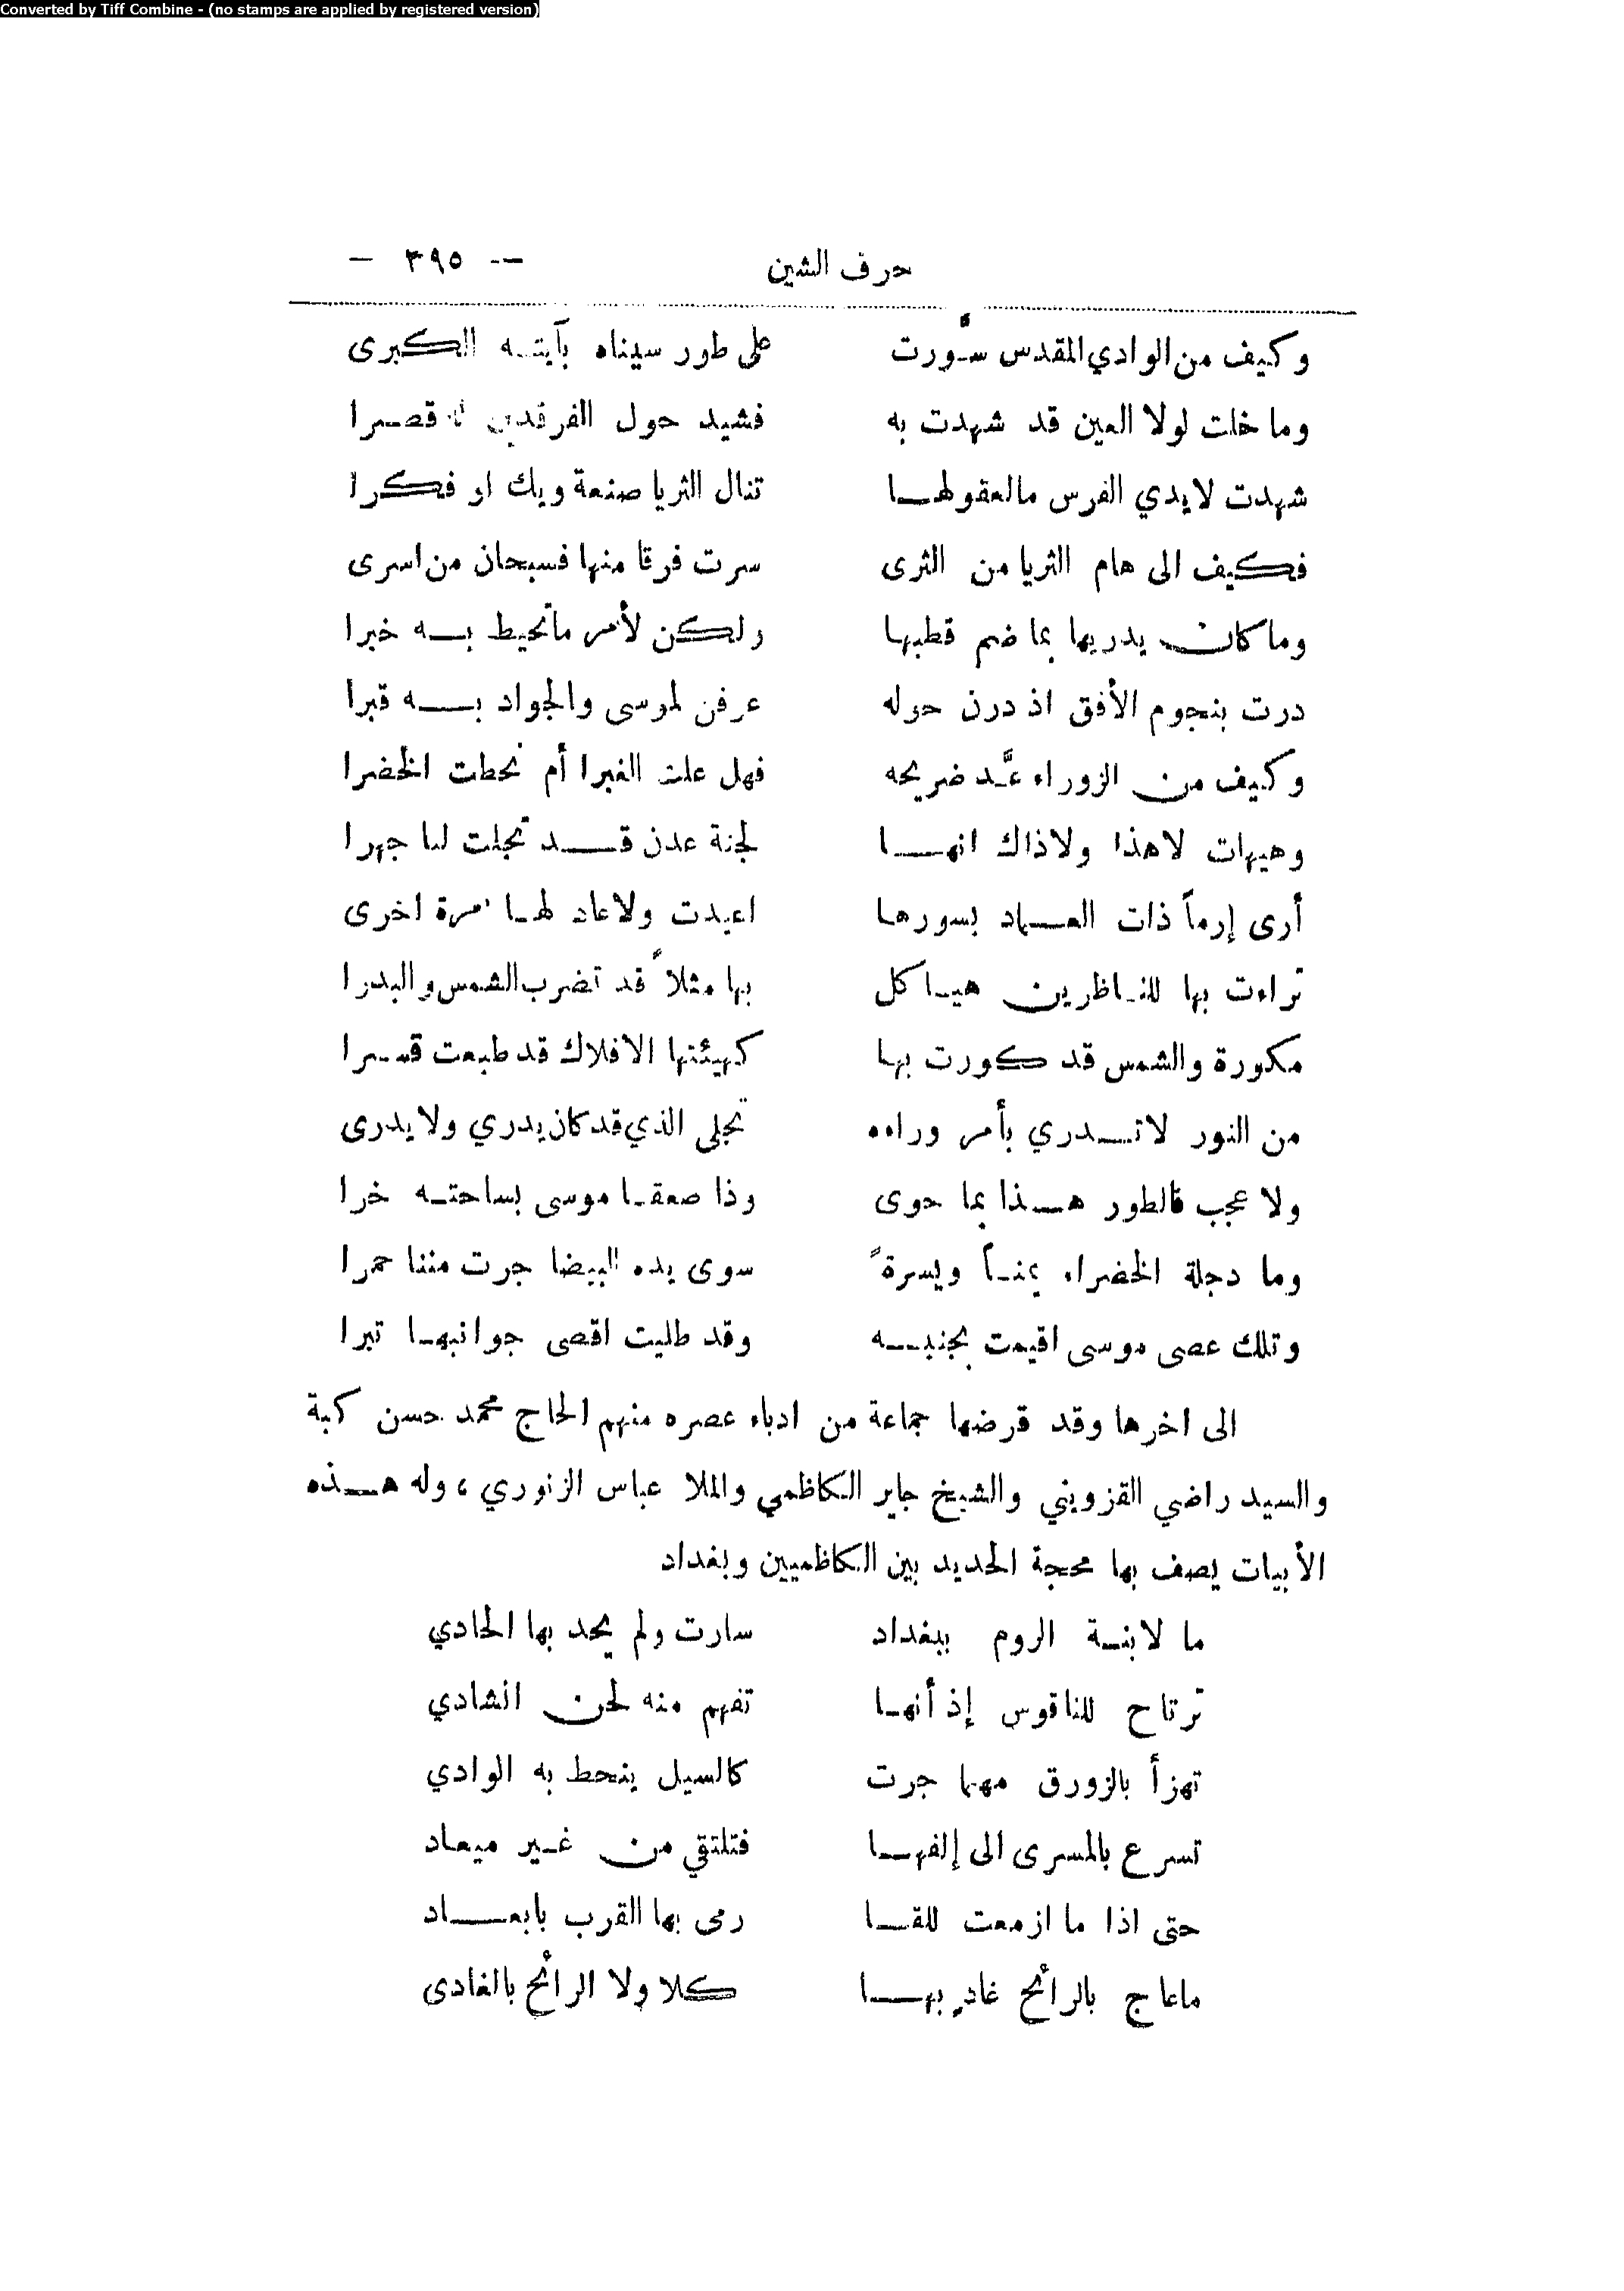 Converted by Tiff Combine - (no stamps are applied by registered version)
حرف الشين -- ٣٩٥ -
وكيف من الوادي المقدس سُورت على طور سيناه بآيتـه الكبرى
وما خلت لولا العين قد شهدت به فشيد حول الفرقدين قصـرا
شهدت لايدي الفرس مالعقولهـا تنال الثريا صنعة ويك او فكرا
فكيف الى هام الثريا من الثرى سرت فرقا منها فسبحان من اسرى
وما كان يدريها بما ضم قطبها ولكن لأمر ماتحيط بـه خبرا
درت بنجوم الأفق اذ درن حوله عرفن لموسى والجواد بـه قبرا
وكيف من الزوراء عدّ ضريحه فهل علت الغبرا أم نحطت الخضرا
وهيهات لاهذا ولاذاك انهـا لجنة عدن قـد تجلت لنا جهرا
أرى إرماً ذات العـماد بسورها اعيدت ولاعاد لهـا مرة اخرى
تراءت بها للنـاظرين هيـاكل بها مثلاً قد تضرب الشمس والبدرا
مكورة والشمس قد كورت بها كهيئتها الافلاك قد طبعت قسـرا
من النور لاتـدري بأمر وراءه تجلى الذي قد كان يدري ولا يدرى
ولا عجب فالطور هـذا بما حوى وذا صعقـا موسى بساحتـه خرا
وما دجلة الخضراء يمنـاً ويسرةً سوى يده البيضا جرت مننا حمرا
وتلك عصى موسى اقيمت بجنبـه وقد طليت اقصى جوانبهـا تبرا
الى اخرها وقد قرضها جماعة من ادباء عصره منهم الحاج محمد حسن كبة
والسيد راضي القزويني والشيخ جابر الكاظمي والملا عباس الزنوري ، وله هـذه
الأبيات يصف بها محجة الحديد بين الكاظميين وبغداد
ما لابنـة الروم ببغداد سارت ولم يحد بها الحادي
ترتاح للناقوس إذ أنهـا تفهم منه لحن انشادي
تهزأ بالزورق مهما جرت كالسيل ينحط به الوادي
تسرع بالمسرى الى إلفهـا فتلتقي من غـير ميعـاد
حتى اذا ما ازمعت للقـا رمى بها القرب بابعـاد
ماعاج بالرائح غادٍ بهـا كلا ولا الرائح بالغادى